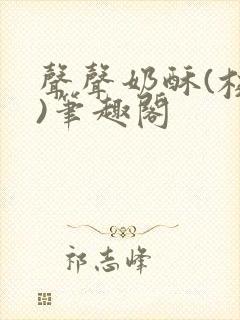 聲聲奶酥(校
)筆趣閣
祁志峰